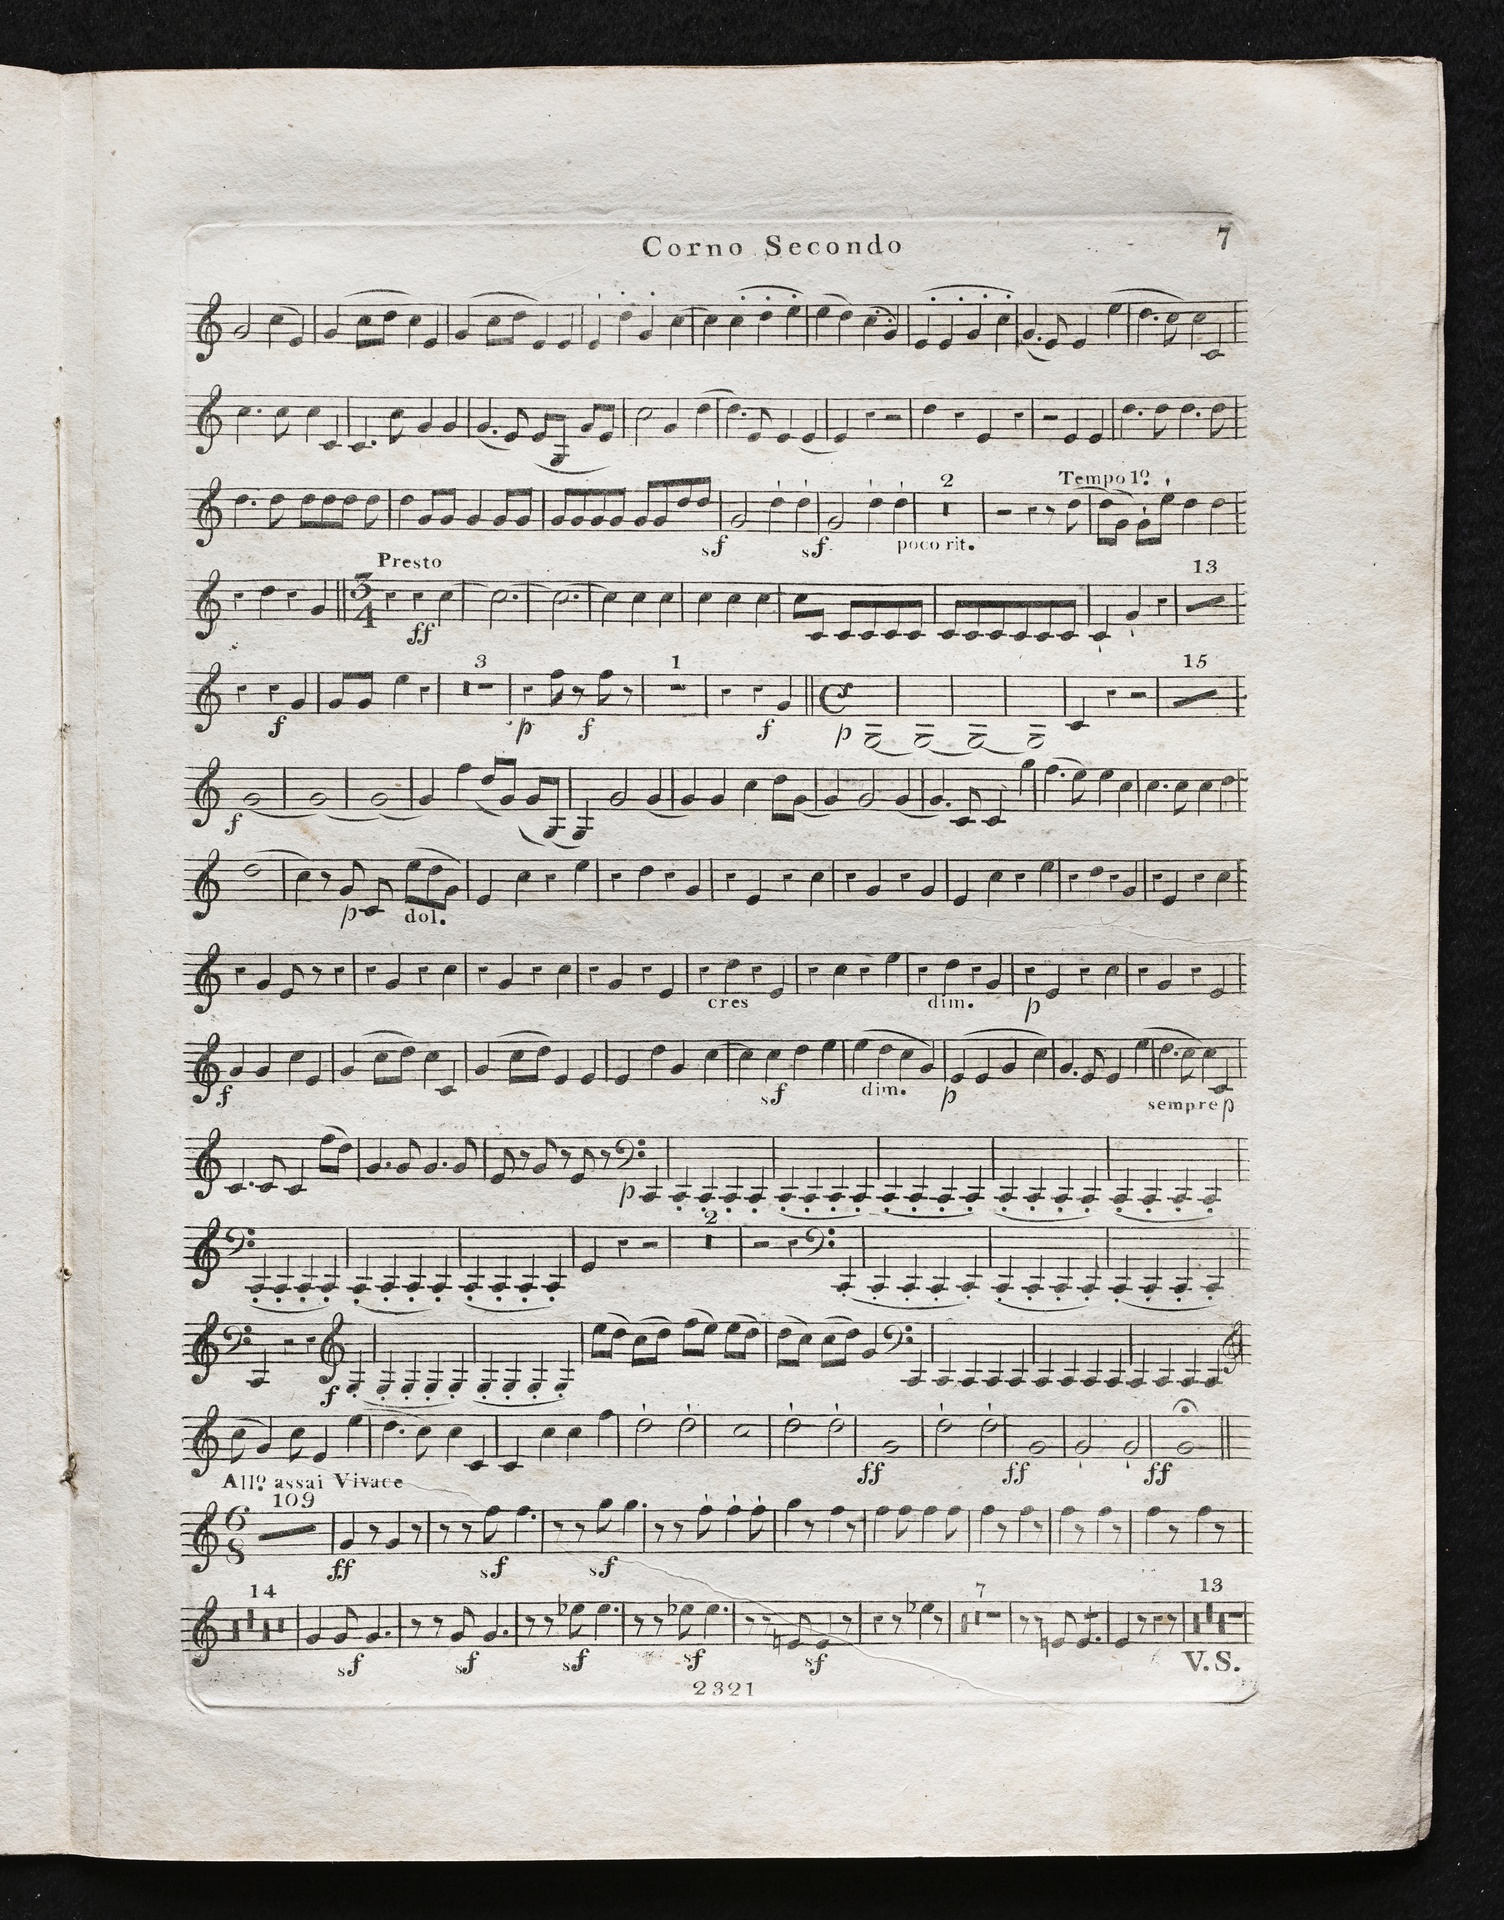 Corno Secondo
7
2
Tempo 1º.
sf
sf
poco rit.
Presto
3
4
ff
13
3
1
15
f
p
f
f
p
f
p
dol.
cres
dim.
p
f
sf
dim.
p
sempre p
p
2
f
ff
ff
ff
Allº. assai Vivace
109
6
8
ff
sf
sf
14
7
13
sf
sf
sf
sf
sf
V.S.
2321